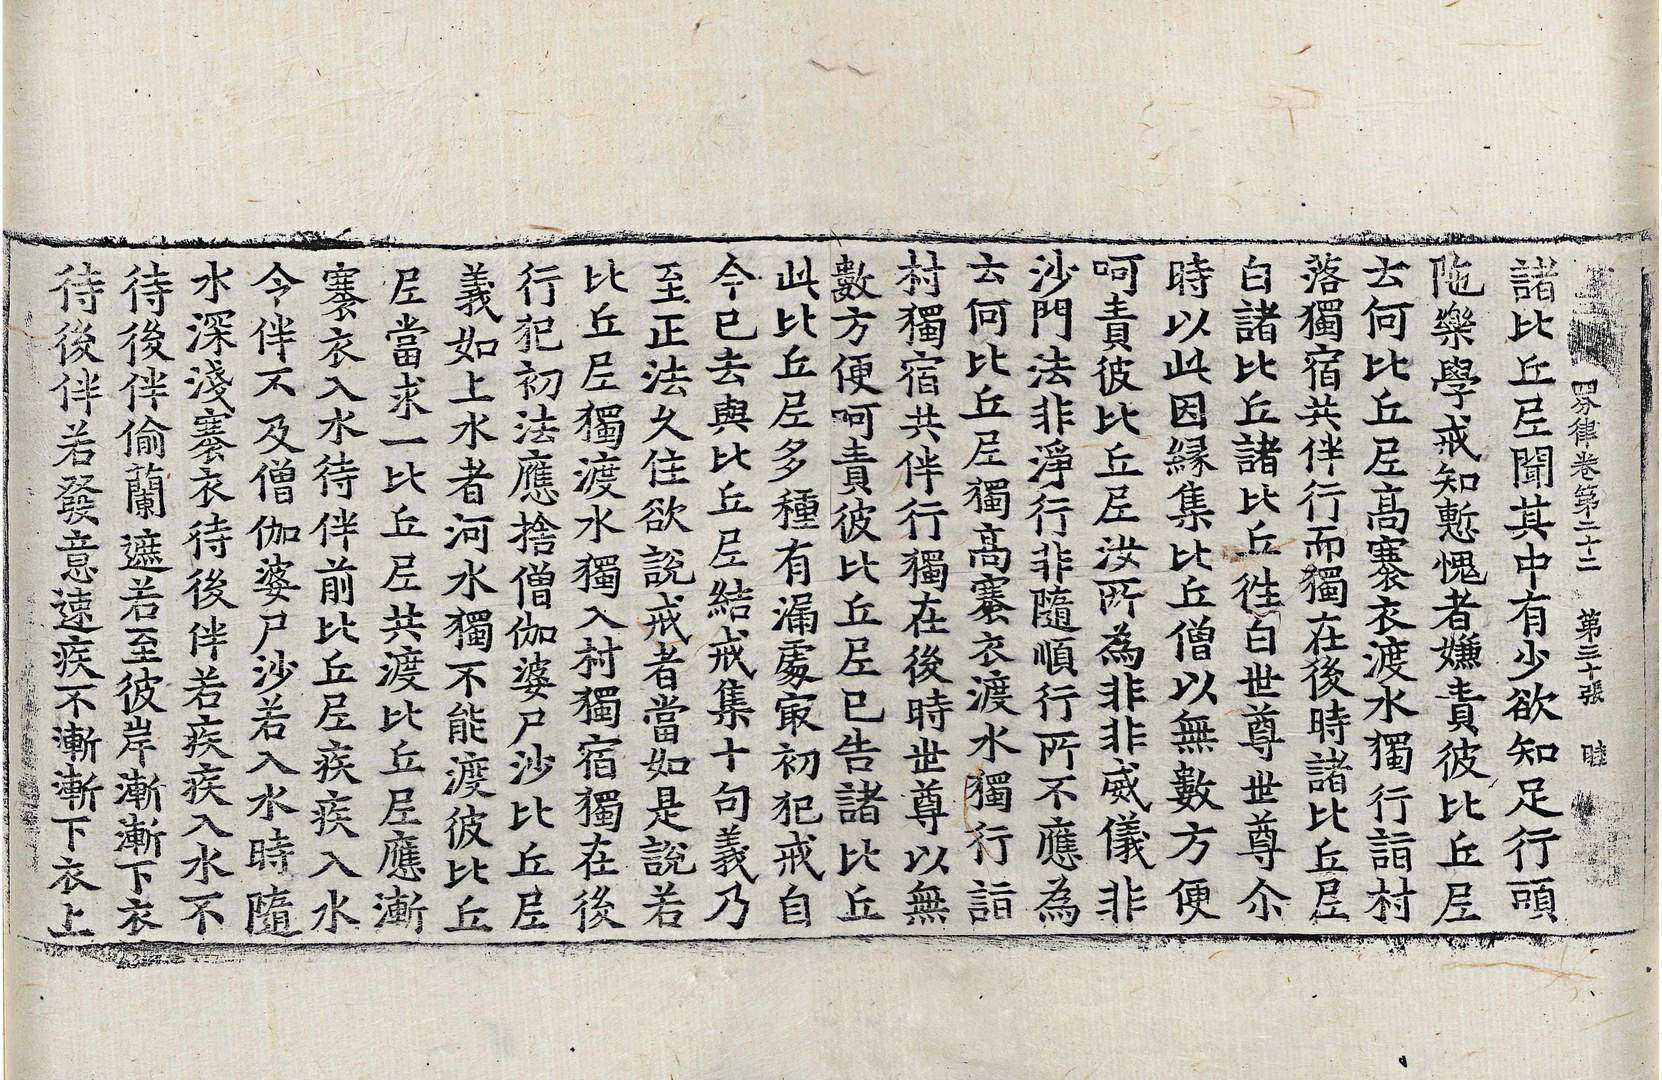 四分律卷第二十二 第三十張 睦
諸比丘尼聞其中有少欲知足行頭
陁樂學戒知慙愧者嫌責彼比丘尼
云何比丘尼高褰衣渡水獨行詣村
落獨宿共伴行而獨在後時諸比丘尼
白諸比丘諸比丘徃白世尊世尊尒
時以此因縁集比丘僧以無數方便
呵責彼比丘尼汝所為非非威儀非
沙門法非淨行非隨順行所不應為
云何比丘尼獨高褰衣渡水獨行詣
村獨宿共伴行獨在後時世尊以無
數方便呵責彼比丘尼已告諸比丘
此比丘尼多種有漏處㝡初犯戒自
今已去與比丘尼結戒集十句義乃
至正法久住欲說戒者當如是說若
比丘尼獨渡水獨入村獨宿獨在後
行犯初法應捨僧伽婆尸沙比丘尼
義如上水者河水獨不能渡彼比丘
尼當求一比丘尼共渡比丘尼應漸
褰衣入水待伴前比丘尼疾疾入水
令伴不及僧伽婆尸沙若入水時隨
水深淺褰衣待後伴若疾疾入水不
待後伴偷蘭遮若至彼岸漸漸下衣
待後伴若發意速疾不漸漸下衣上